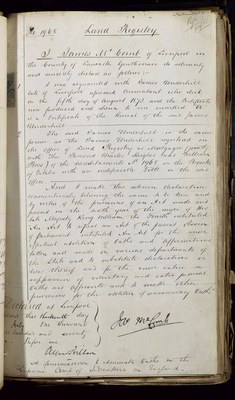 No 1965 Land Registry
I James McComb of Liverpool in
the County of Lancaster Gentleman do solemnly
and sincerely declare as follows:-
I was acquainted with James Underhill
late of Liverpool aforesaid who died
on the fifth day of August 1870 and the Certificate
now produced and shown to me marked
is a Certificate of the Burial of the said James
Underhill
The said James Underhill is the same
person as the James Underhill registered in
the Office of Land Registry as Mortgagee (jointly
with
) of the
of Estates with an indefeasible Title in the said
Office
And I make this solemn declaration
conscientiously believing the same to be true and
by virtue of the provisions of an Act made and
passed in the sixth year of the reign of His
late Majesty King William the Fourth intituled
An Act to repeal an Act of the present Session
of Parliament intituled An Act for the more
effectual abolition of Oaths and Affirmations
taken and made in various departments of
the State and to substitute declarations in
lieu thereof and for the more entire
suppression of voluntary and extra judicial
Oaths and Affidavits and to make other
provisions for the abolition of unnecessary Oaths
Declared at Liverpool
this thirteenth day
of One thousand
eight hundred and seventy
Before me
Jas McComb
A Commissioner to administer Oaths in the
in England